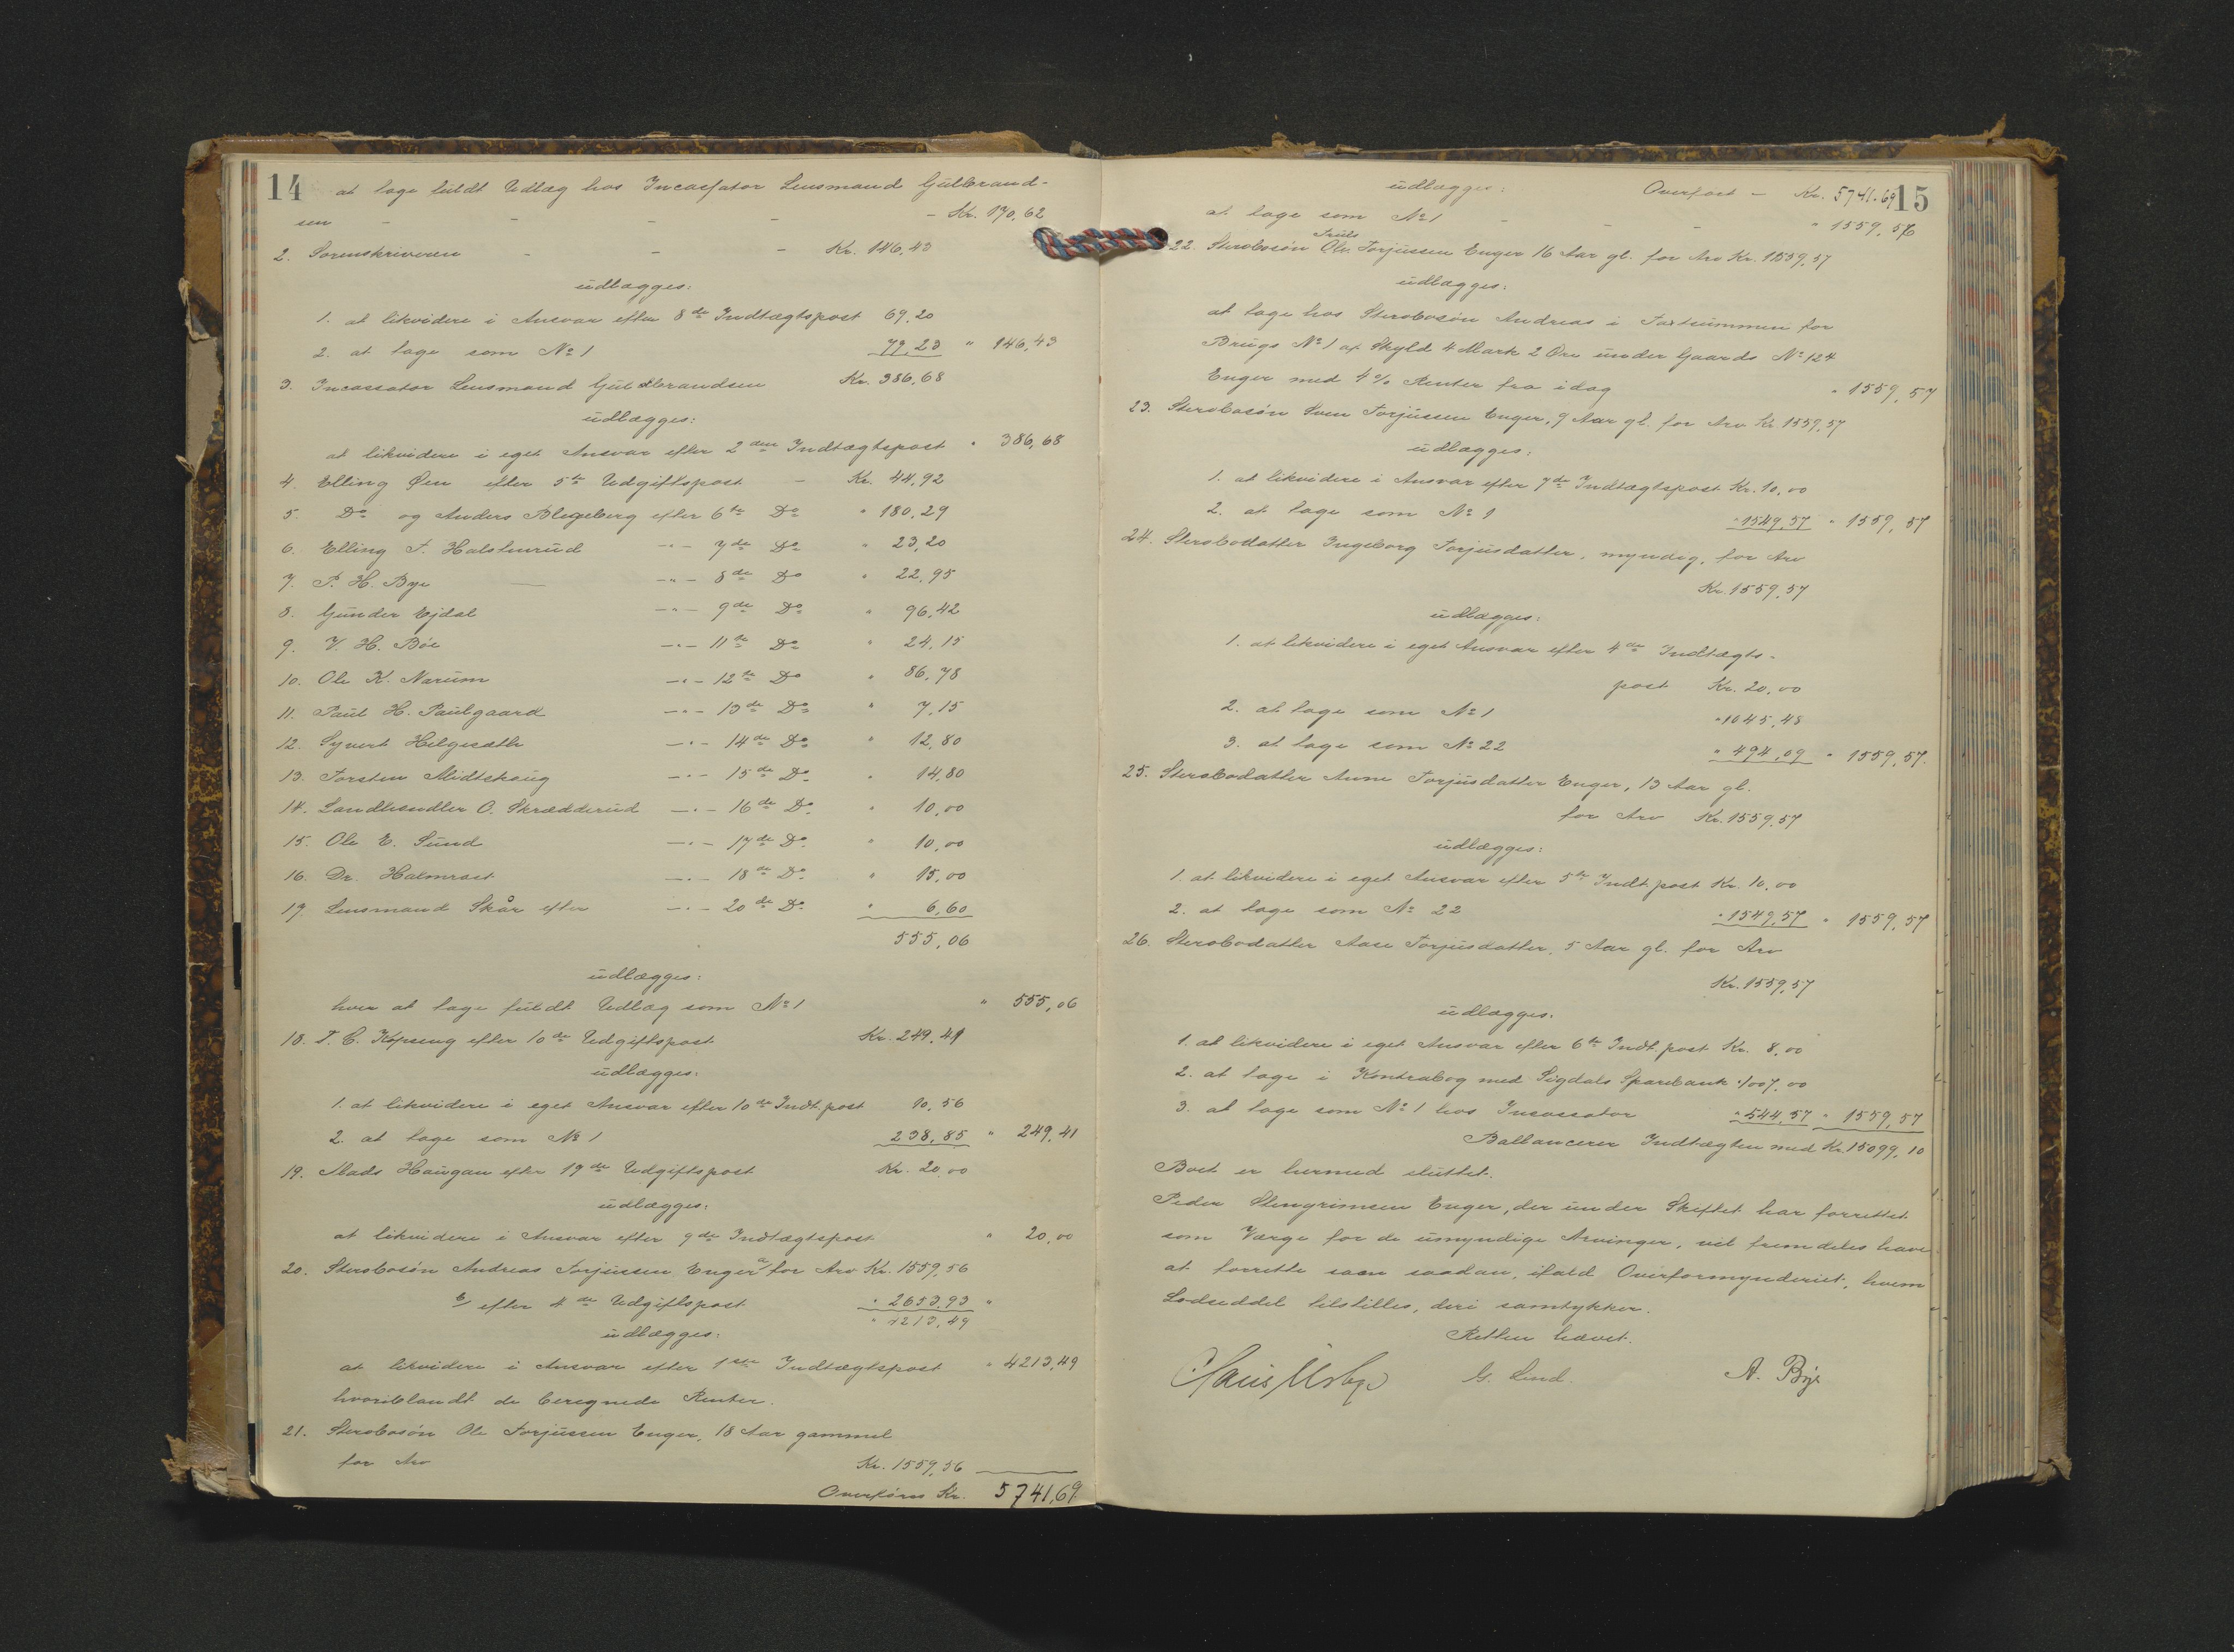 14 at tage fuldt Udlæg hos Incassator Lensmand Gulbrand-
sen - - - - Kr. 170,62
2. Sorenskriveren - - - Kr. 146,43
udlægges:
1. at likvidere i Ansvar efter 8de Indtægtspost 69,20
2. at tage som No 1 77,23 " 146,43
3. Incassator Lensmand Guldbrandsen Kr. 386,68
udlægges:
at likvidere i eget Ansvar efter 2den Indtægtspost " 386,68
4. Elling Øen efter 5te Udgiftspost - Kr. 44,92
5. Do og Anders Blegeberg efter 6te Do " 180,29
6. Elling T. Halstenrud -"- 7de Do " 23,20
7. P. H. Bye -"- 8de Do " 22,95
8. Gunder Ejdal -"- 9de Do " 96,42
9. V. H. Bøe -"- 11te Do " 24,15
10. Ole K. Narum -"- 12te Do " 86,78
11. Paul H. Paulgaard -"- 13de Do " 7,15
12. Syvert Helgesætr -"- 14de Do " 12,80
13. Torsten Midtskoug -"- 15de Do " 14,80
14. Landhandler O. Skrædderud -"- 16de Do " 10,00
15. Ole E. Sund -"- 17de Do " 10,00
16. Dr. Halmrast -"- 18de Do " 15,00
17. Lensmand Skår efter -"- 20de Do " 6,60
555,06
udlægges:
hver at tage fuldt Udlæg som No 1 " 555,06
18. T. C. efter 10de Udgiftspost Kr. 249,41
udlægges:
1. at likvidere i eget Ansvar efter 10de Indt. post 10,56
2. at tage som No 1 238,85 " 249,41
19. Mads Haugan efter 19de Udgiftspost Kr. 20,00
udlægges:
at likvidere i Ansvar efter 9de Indtægtspost " 20,00
20. Stervbosøn Andreas Torjussen Enger a for Arv Kr. 1559,56
b/ efter 4de Udgiftspost " 2653,93 "
" 4213,49
udlægges:
at likvidere i Ansvar efter 1ste Indtægtspost " 4213,49
hvoriblandt de beregnede Renter.
21. Stervbosøn Ole Torjussen Enger, 18 Aar gammel
for Arv Kr. 1559,56
Overføres Kr. 5741,69
15
udlægges: Overført - Kr. 5741.69
at tage som No 1 - - - " 1559,56
Truls
22. Stervbosøn Ole Torjussen Enger 16 Aar gl. for Arv Kr. 1559,57
udlægges:
at tage hos Stervbosøn Andreas i Taxtsummen for
Brugs No 1 af Skyld 4 Mark 2 Øre under Gaards No 124
Enger med 4 % Renter fra idag " 1559,57
23. Stervbosøn Sven Torjussen Enger, 9 Aar gl. for Arv Kr. 1559,57
udlægges:
1. at likvidere i Ansvar efter 7de Indtægtspost Kr. 10,00
2. at tage som No 1 " 1549,57 " 1559,57
24. Stervbodatter Ingeborg Torjusdatter, myndig, for Arv
Kr. 1559,57
udlægges:
1. at likvidere i eget Ansvar efter 4de Indtægts-
post Kr. 20,00
2. at tage som No 1 " 1045,48
3. at tage som No 22 " 494,09 " 1559,57.
25. Stervbodatter Anne Torjusdatter Enger, 13 Aar gl.
for Arv Kr. 1559,57
udlægges:
1. at likvidere i eget Ansvar efter 5te Indt. post Kr. 10,00
2. at tage som No 22 " 1549,57 " 1559,57
26. Stervbodatter Aase Torjusdatter, 5 Aar gl. for Arv
Kr. 1559,57
udlægges:
1. at likvidere i eget Ansvar efter 6te Indt. post Kr. 8,00
2. at tage i Kontrabog med Sigdals Sparebank " 1007,00
3. at tage som No 1 hos Incassator " 544,57 " 1559,57
Ballancerer Indtægten med Kr. 15099,10
Boet er hermed sluttet.
Peder Stengrimsen Enger, der under Skiftet har forrettet
som Værge for de umyndige Arvinger, vil fremdeles have
at forrette som saadan, ifald Overformynderiet, hvem
Lodseddel tilstilles, deri samtykker.
Retten hævet.
G. Lind. A. Bye